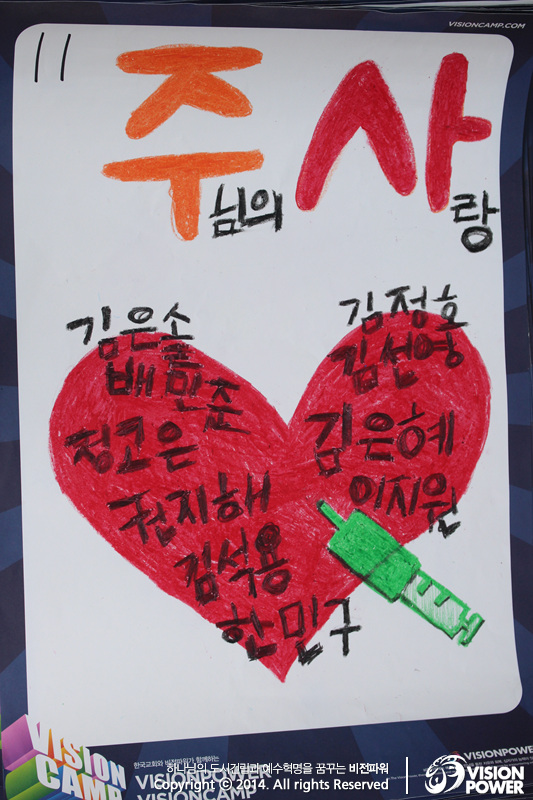 VISIONCAMP.COM
11
주님의 사랑
김은솔
배민준
정고은
권지해
김석용
한민구
김정호
김선영
김은혜
이지원
VISION
CAMP
한국교회와 비전파워가 함께하는
VISIONPOWER
VISIONCAMP
VISIONPOWER
하나님의 도시건립과 예수혁명을 꿈꾸는 비전파워
Copyright © 2014. All rights Reserved
VISION
POWER